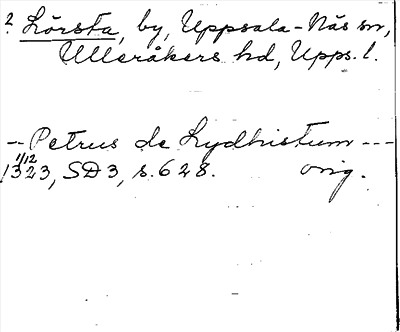 ? Lörsta, by, Uppsala-Näs sn,
Ulleråkers hd, Upps. l.
-- Petrus de Lydhistum ---
1/12
1323, SD3, s. 628. orig.